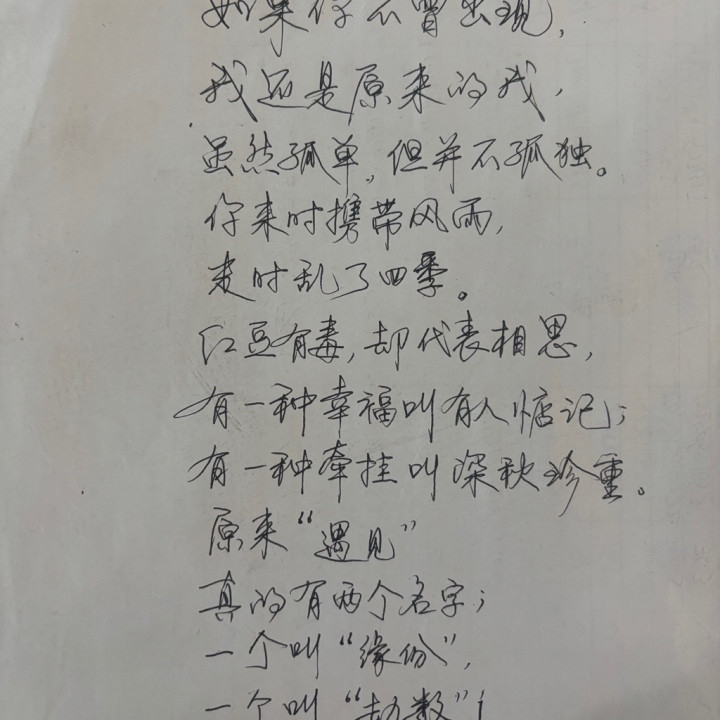 如果你不曾出现,
我还是原来的我,
虽然孤单,但并不孤独。
你来时携带风雨,
走时乱了四季。
红豆有毒,却代表相思,
有一种幸福叫有人惦记;
有一种牵挂叫深秋珍重。
原来“遇见”
真的有两个名字;
一个叫“缘份”,
一个叫“劫数”!